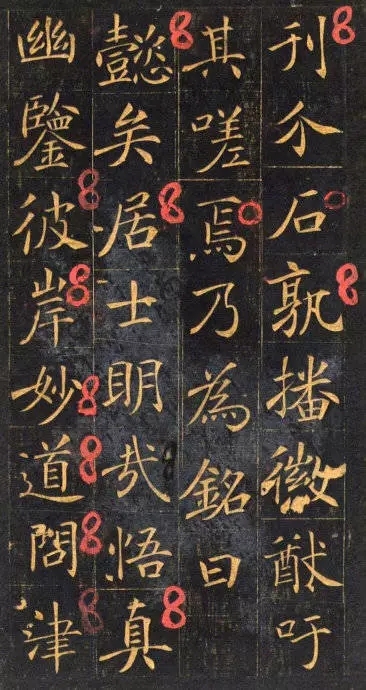 刊介石孰播徽猷吁
其嗟焉乃為銘曰
懿矣居士眀哉悟真
幽鑒彼岸妙道津